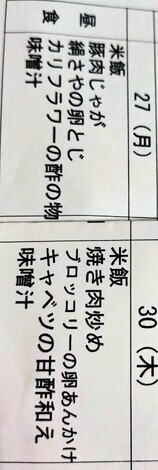 昼食
27（月）
米飯
豚肉じゃが
絹さやの卵とじ
カリフラワーの酢の物
味噌汁
30（木）
米飯
焼き肉炒め
ブロッコリーの卵あんかけ
キャベツの甘酢和え
味噌汁